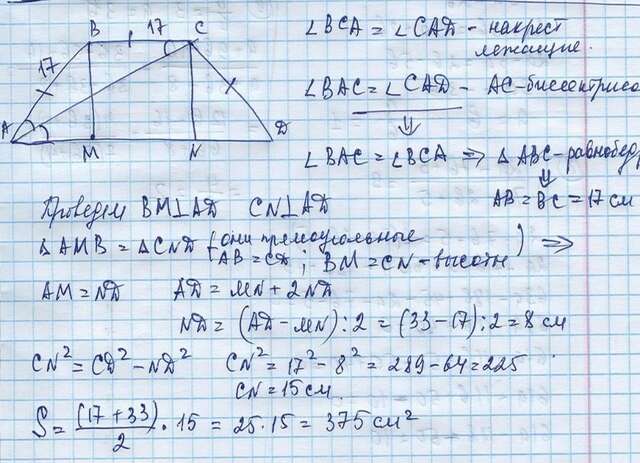 B 17 C
17
A M N D
∠BCA = ∠CAD - накрест
лежащие.
∠BAC = ∠CAD - AC-биссектриса
⇓
∠BAC = ∠BCA ⇒ △ABC-равнобед,
⇓
AB = BC = 17 см
Проведем BM⊥AD CN⊥AD
△AMB = △CND (они прямоугольные
AB = CD; BM = CN - высоты) ⇒
AM = ND AD = MN + 2ND
ND = (AD - MN) : 2 = (33 - 17) : 2 = 8 см
CN² = CD² - ND² CN² = 17² - 8² = 289 - 64 = 225
CN = 15 см.
S = (17 + 33)/2 · 15 = 25 · 15 = 375 см²